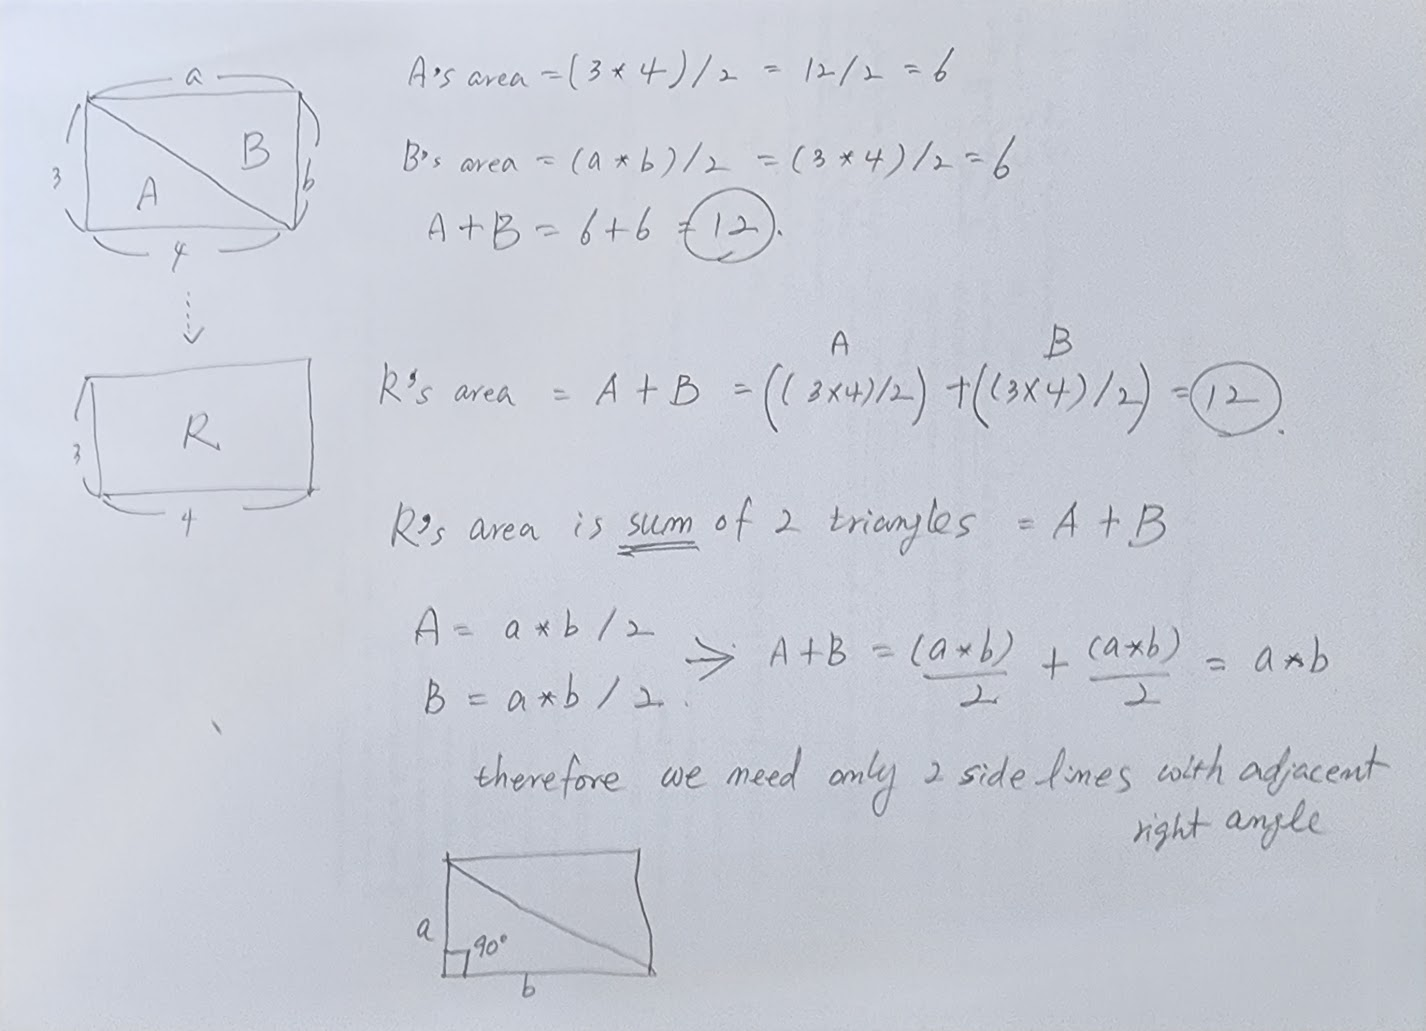 a
A's area = (3 * 4) / 2 = 12/2 = 6
3
A
B
b
4
B's area = (a * b) / 2 = (3 * 4) / 2 = 6
A + B = 6 + 6 = 12.
A B
R's area = A + B = ((3×4)/2) + ((3×4)/2) = 12.
3
R
4
R's area is sum of 2 triangles = A + B
A = a * b / 2
B = a * b / 2.
→ A + B = (a*b)/2 + (a*b)/2 = a*b
therefore we need only 2 side lines with adjacent
right angle
a
90°
b